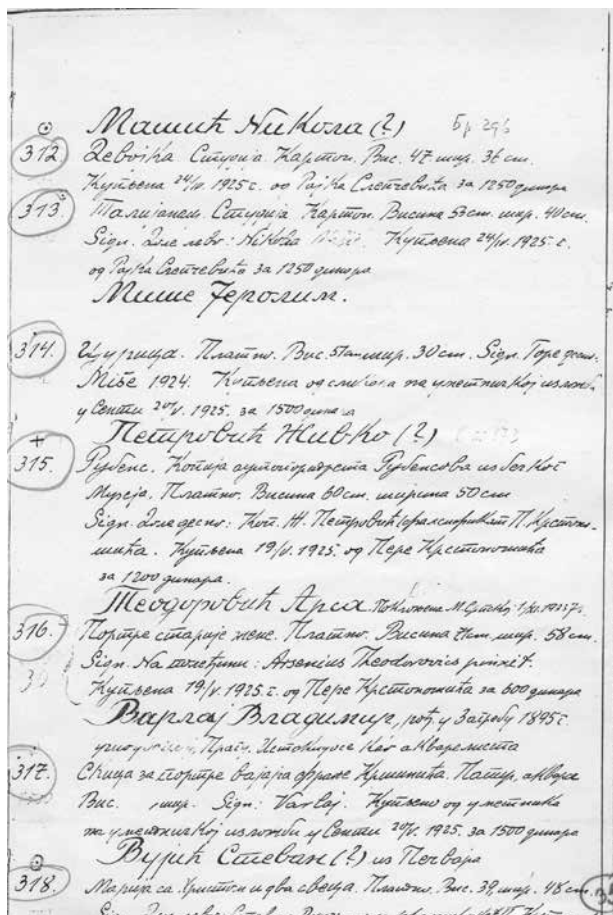 Машић Никола (?) Бр. 296
312. Девојка Студија. Картон. Вис. 47 шир. 36 cm.
Купљена 24/IV. 1925 г. од Рајка Слепчевића за 1250 динара
313. Талијанац. Студија Картон. Висина 53 cm. шир. 40 cm.
Sign. Доле лево: Nikola Купљена 24/IV. 1925. г.
од Рајка Слепчевића за 1250 динара
Мише Јеролим.
314. Платно. Вис. шир. 30 cm. Sign. Горе десно.
Miše 1924. Купљена од сликара на уметничкој изложби
у Сенти 20/V. 1925. за 1500 динара
Петровић Живко (?)
315. Рубенс. Копија аутопортрета Рубенсова из бечког
Музеја. Платно. Висина 60 cm. ширина 50 cm
Sign. Доле десно: Коп. Ж. Петровић П. Крстоно-
шића. Купљена 19/V. 1925. од Пере Крстоношића
за 1200 динара.
Теодоровић Арса
316. Портре старије жене. Платно. Висина шир. 58 cm.
Sign. На полеђини: Arsenius Theodorovics pinxit.
Купљена 19/V. 1925. г. од Пере Крстоношића за 600 динара
Варлај Владимир, рођ. у Загребу 1895 г.
317. Скица за портре вајара Фране Кршинића. Папир, аквар
Вис. шир. Sign: Varlaj. Купљено од уметника
на уметничкој изложби у Сенти 20/V. 1925. за 1500 динара
Вујић Стеван (?) из Печвара
318. Марија са Христом и два свеца. Платно. Вис. 39, шир. 48 cm.